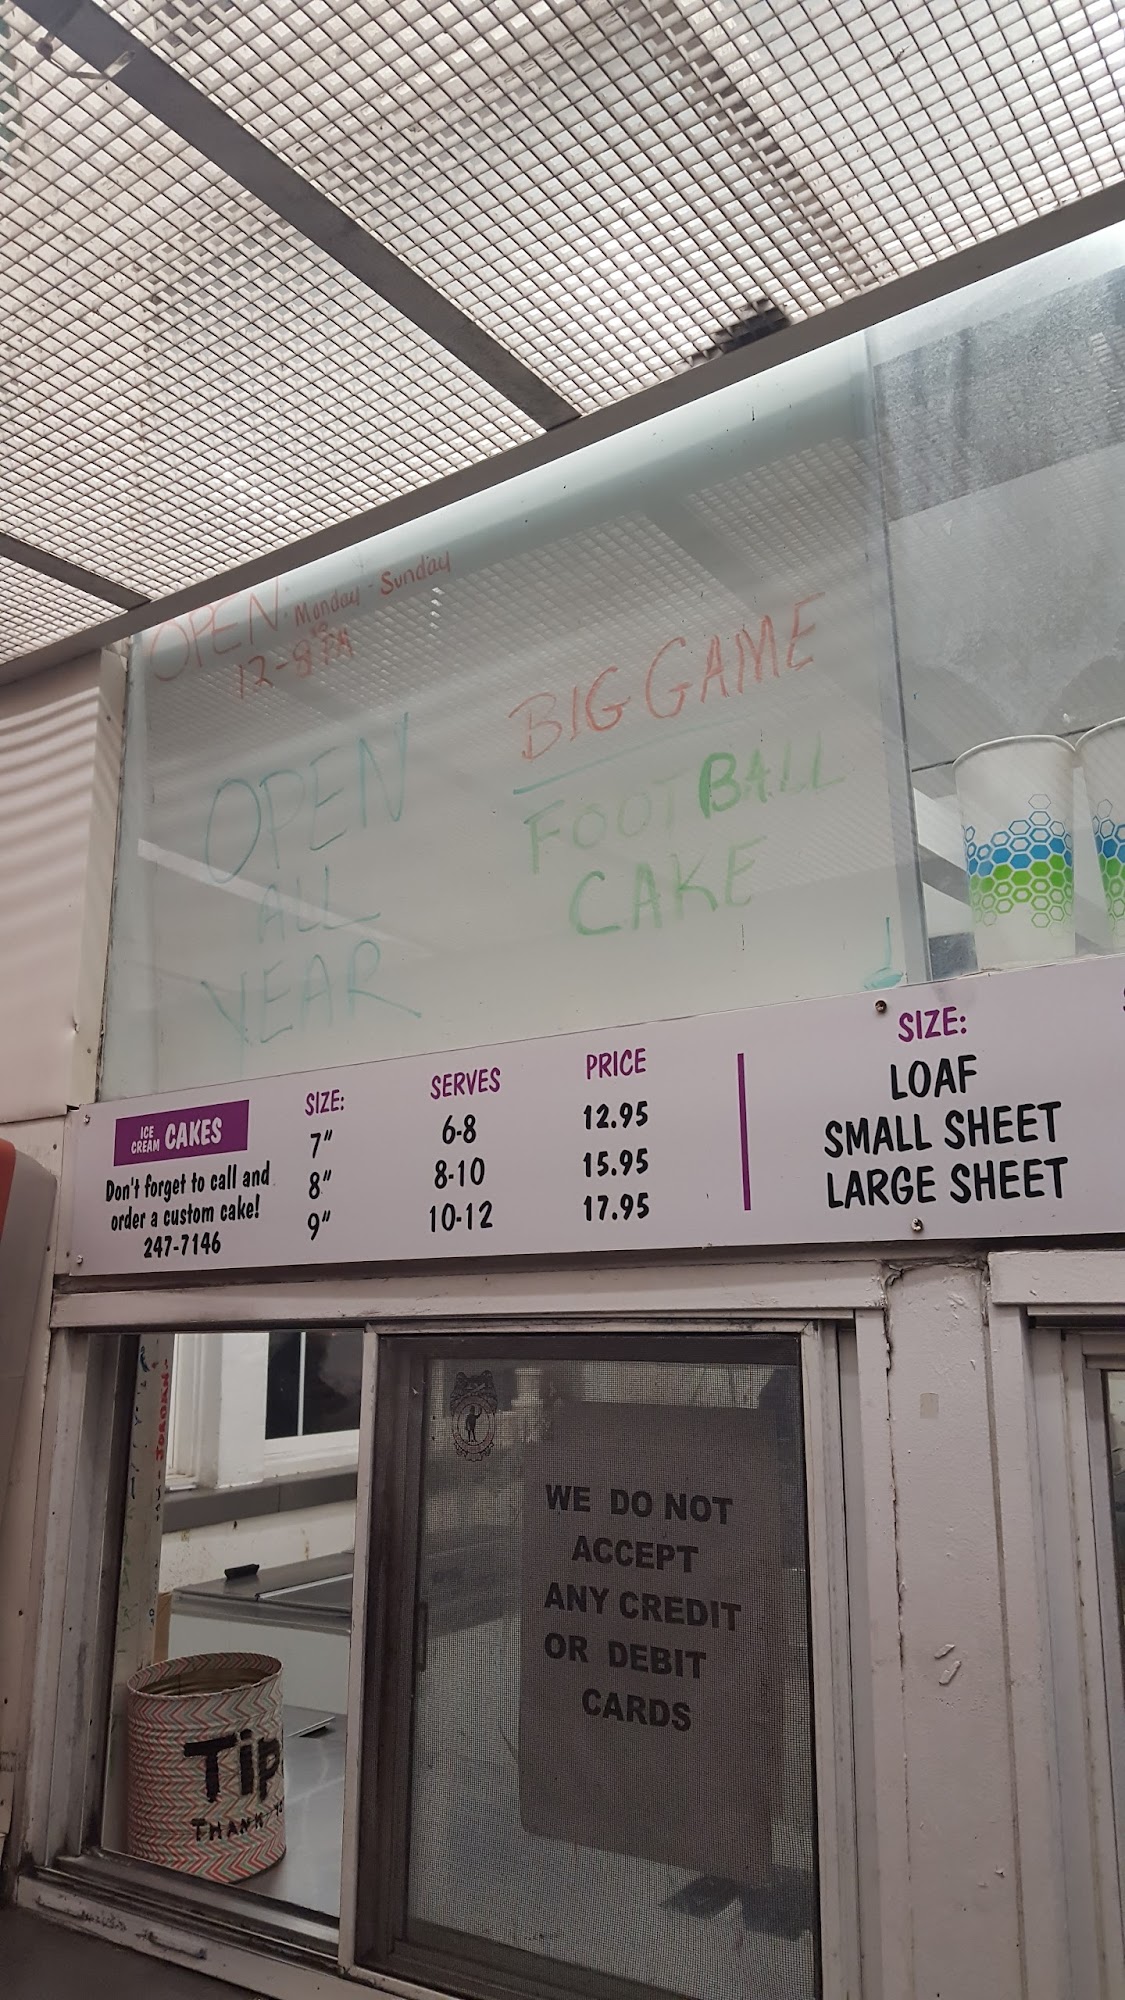 OPEN: Monday - Sunday
12-8PM
OPEN
ALL
YEAR
BIG GAME
FOOTBALL
CAKE
ICE CREAM CAKES
Don't forget to call and
order a custom cake!
247-7146
SIZE: SERVES PRICE
7" 6-8 12.95
8" 8-10 15.95
9" 10-12 17.95
SIZE:
LOAF
SMALL SHEET
LARGE SHEET
JORDAN
WE DO NOT
ACCEPT
ANY CREDIT
OR DEBIT
CARDS
Tip
THANK